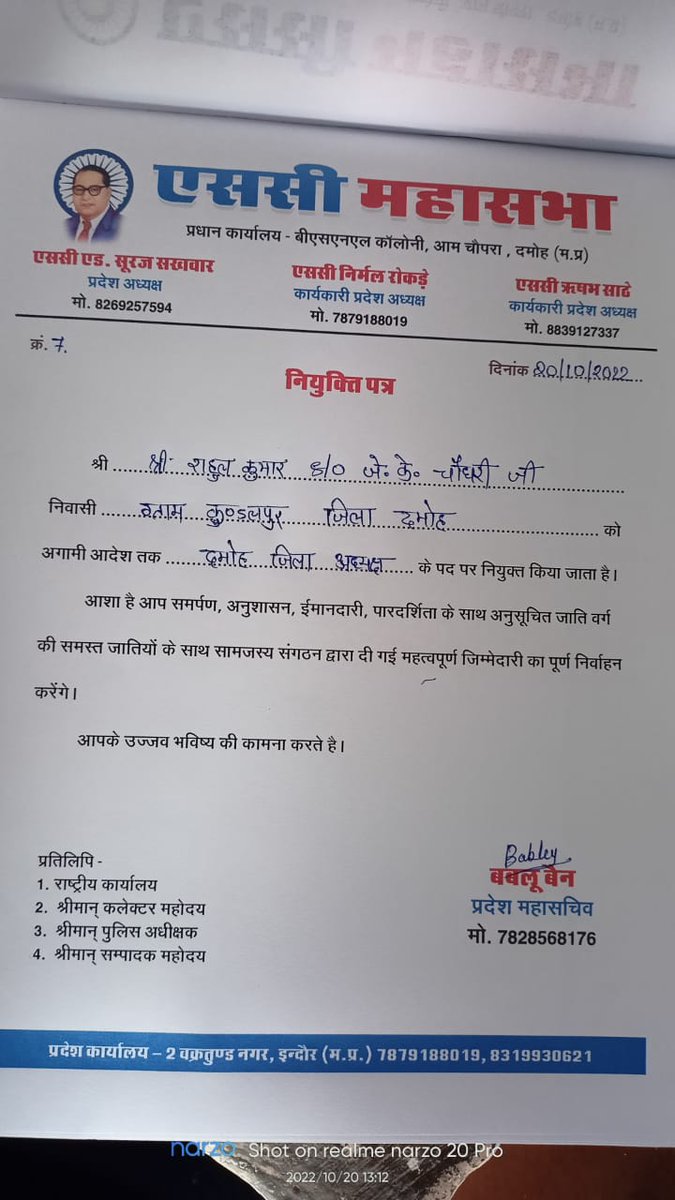 एससी महासभा
प्रधान कार्यालय - बीएसएनएल कॉलोनी, आम चौपरा , दमोह (म.प्र)
एससी एड. सूरज सखवार
प्रदेश अध्यक्ष
मो. 8269257594
एससी निर्मल रोकड़े
कार्यकारी प्रदेश अध्यक्ष
मो. 7879188019
एससी ऋषभ साठे
कार्यकारी प्रदेश अध्यक्ष
मो. 8839127337
क्रं. 7.
दिनांक 20/10/2022
नियुक्ति पत्र
श्री श्री राहुल कुमार S/O जे. के. चौधरी जी
निवासी कुण्डलपुर जिला दमोह को
अगामी आदेश तक दमोह जिला अध्यक्ष के पद पर नियुक्त किया जाता है।
आशा है आप समर्पण, अनुशासन, ईमानदारी, पारदर्शिता के साथ अनुसूचित जाति वर्ग
की समस्त जातियों के साथ सामजस्य संगठन द्वारा दी गई महत्वपूर्ण जिम्मेदारी का पूर्ण निर्वाहन
करेंगे।
आपके उज्जव भविष्य की कामना करते है।
प्रतिलिपि -
1. राष्ट्रीय कार्यालय
2. श्रीमान् कलेक्टर महोदय
3. श्रीमान् पुलिस अधीक्षक
4. श्रीमान् सम्पादक महोदय
Babley
बबलू बैन
प्रदेश महासचिव
मो. 7828568176
प्रदेश कार्यालय – 2 वक्रतुण्ड नगर, इन्दौर (म.प्र.) 7879188019, 8319930621
narzo Shot on realme narzo 20 Pro
2022/10/20 13:12